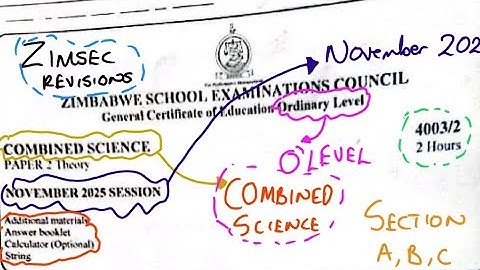 ZIMSEC
REVISIONS
November 202
ZIMBABWE SCHOOL EXAMINATIONS COUNCIL
General Certificate of Education Ordinary Level
COMBINED SCIENCE
PAPER 2 Theory
4003/2
2 Hours
O'LEVEL
NOVEMBER 2025 SESSION
COMBINED
SCIENCE
Additional materials
Answer booklet
Calculator (Optional)
String
SECTION
A, B, C